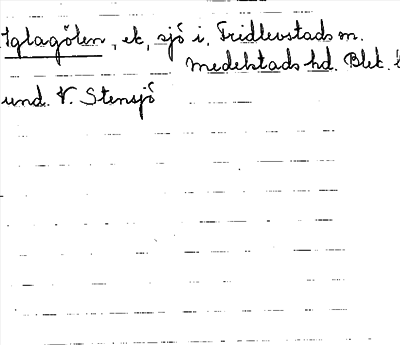 Iglagölen, ek, sjö i, Fridlevstads sn.
Medelstads hd. Blek.
und. V. Stensjö